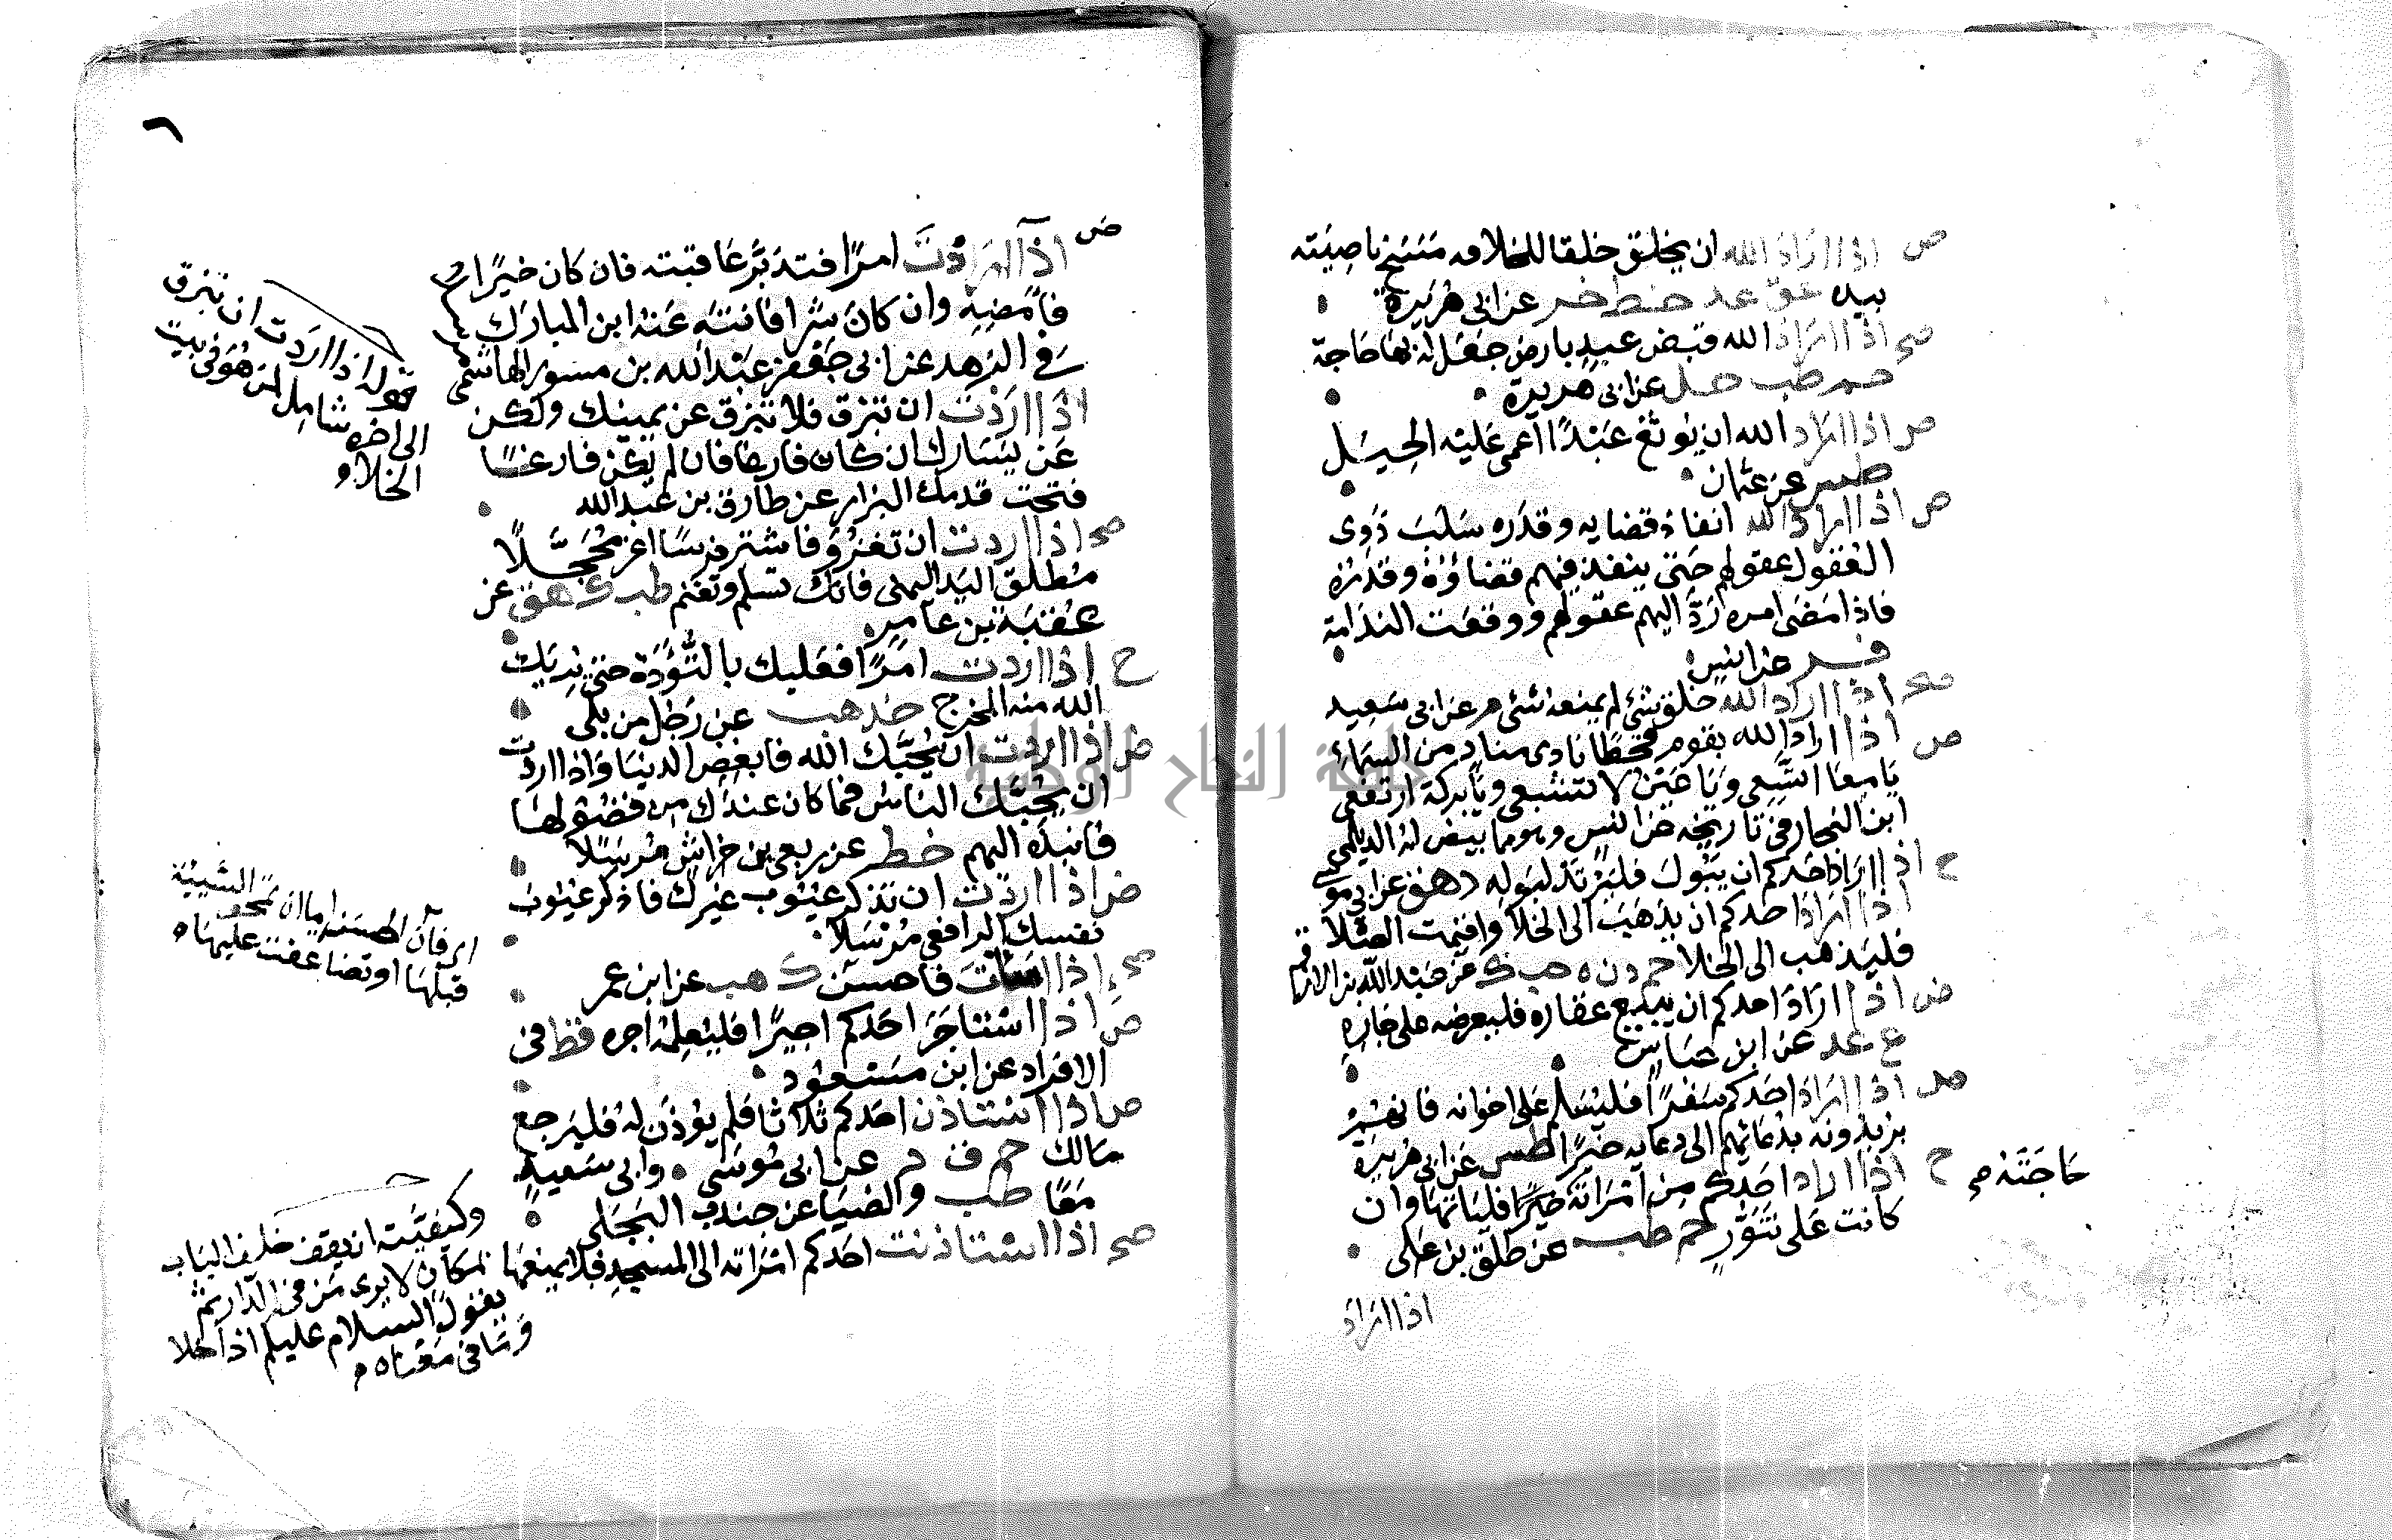 ض اذا اراد الله ان يخلق خلقا للخلافه مسح ناصيته
بيده عق عد خط فر عن ابي هريرة
صح اذا اراد الله قبض عبد بارض جعل له بها حاجة
حم طب حل عن ابي هريرة
ض اذا اراد الله ان يوتغ عبدا اعمى عليه الحيل
طس عن عثمان
ض اذا اراد الله انفاذ قضايه وقدره سلب ذوى
العقول عقولهم حتى ينفذ فيهم قضاؤه وقدره
فاذا مضى امره رد اليهم عقولهم ووقعت الندامة
فر عن انس
صح اذا اراد الله خلق شئ لم يمنعه شئ م عن ابي سعيد
ض اذا اراد الله بقوم قحطا نادى مناد من السماء
يا معا اتسعى ويا عين لا تشبعى ويا بركة ارتفعى
ابن النجار في تاريخه عن انس وهو مما بيض له الديلمى
ح اذا اراد احدكم ان يبول فليرتد لبوله د هق عن ابي موسى
اذا اراد احدكم ان يذهب الى الخلا واقيمت الصلا
فليذهب الى الخلا حم د ن ه حب ك عن عبد الله بن الارقم
ض اذا اراد احدكم ان يبيع عقاره فليعرضه على جاره
ع عد عن ابن عباس
ض اذا اراد احدكم سفرا فليسلم على اخوانه فانهم
يزيدونه بدعائهم الى دعايه خيرا طس عن ابي هريرة
ح اذا اراد احدكم من امراته فلياتها وان
حاجته صح
كانت على تنور حم طب عن طلق بن على
اذا اراد
٦
ض اذا اردت امرا فتدبر عاقبته فان كان خيرا
فامضه وان كان شرا فانته عنه ابن المبارك
في الزهد عن ابي جعفر عبد الله بن مسور الهاشمى
اذا اردت ان تبزق فلا تبزق عن يمينك ولكن
عن يسارك ان كان فارغا فان لم يكن فارغا
فتحت قدمك البزار عن طارق بن عبد الله
صح اذا اردت ان تغزو فاشتر فرسا اغر محجلا
مطلق اليد اليمنى فانك تسلم وتغنم طب ك هق عن
عقبة بن عامر
ح اذا اردت امرا فعليك بالتؤدة حتى يريك
الله منه المخرج خد هب عن رجل من بلى
ض اذا اردت ان يحبك الله فابغض الدنيا واذا اردت
ان يحبك الناس فما كان عندك من فضولها
فانبذه اليهم خط عن ربعى بن خراش مرسلا
ض اذا اردت ان تذكر عيوب غيرك فاذكر عيوب
نفسك الرافعى مرسلا
صح اذا اسات فاحسن ك هب عن ابن عمر
ض اذا استاجر احدكم اجيرا فليعلمه اجره قط في
الافراد عن ابن مسعود
ض اذا استاذن احدكم ثلاثا فلم يؤذن له فليرجع
مالك حم ق د عن ابي موسى وابي سعيد
معا طب والضيا عن جندب البجلى
صح اذا استاذنت احدكم امراته الى المسجد فلا يمنعها
قوله اذا اردت ان تبزق
الى اخره شامل لمن هو في بيت
الخلاء
اى فان الحسنة اما ان تمحق السيئة
قبلها او تضاعفت عليها
وكيفيته ان يقف خلف الباب
بمكان لا يرى من في الدار ثم
يقول السلام عليكم اذا
وما في معناه
جامعة النجاح الوطنية